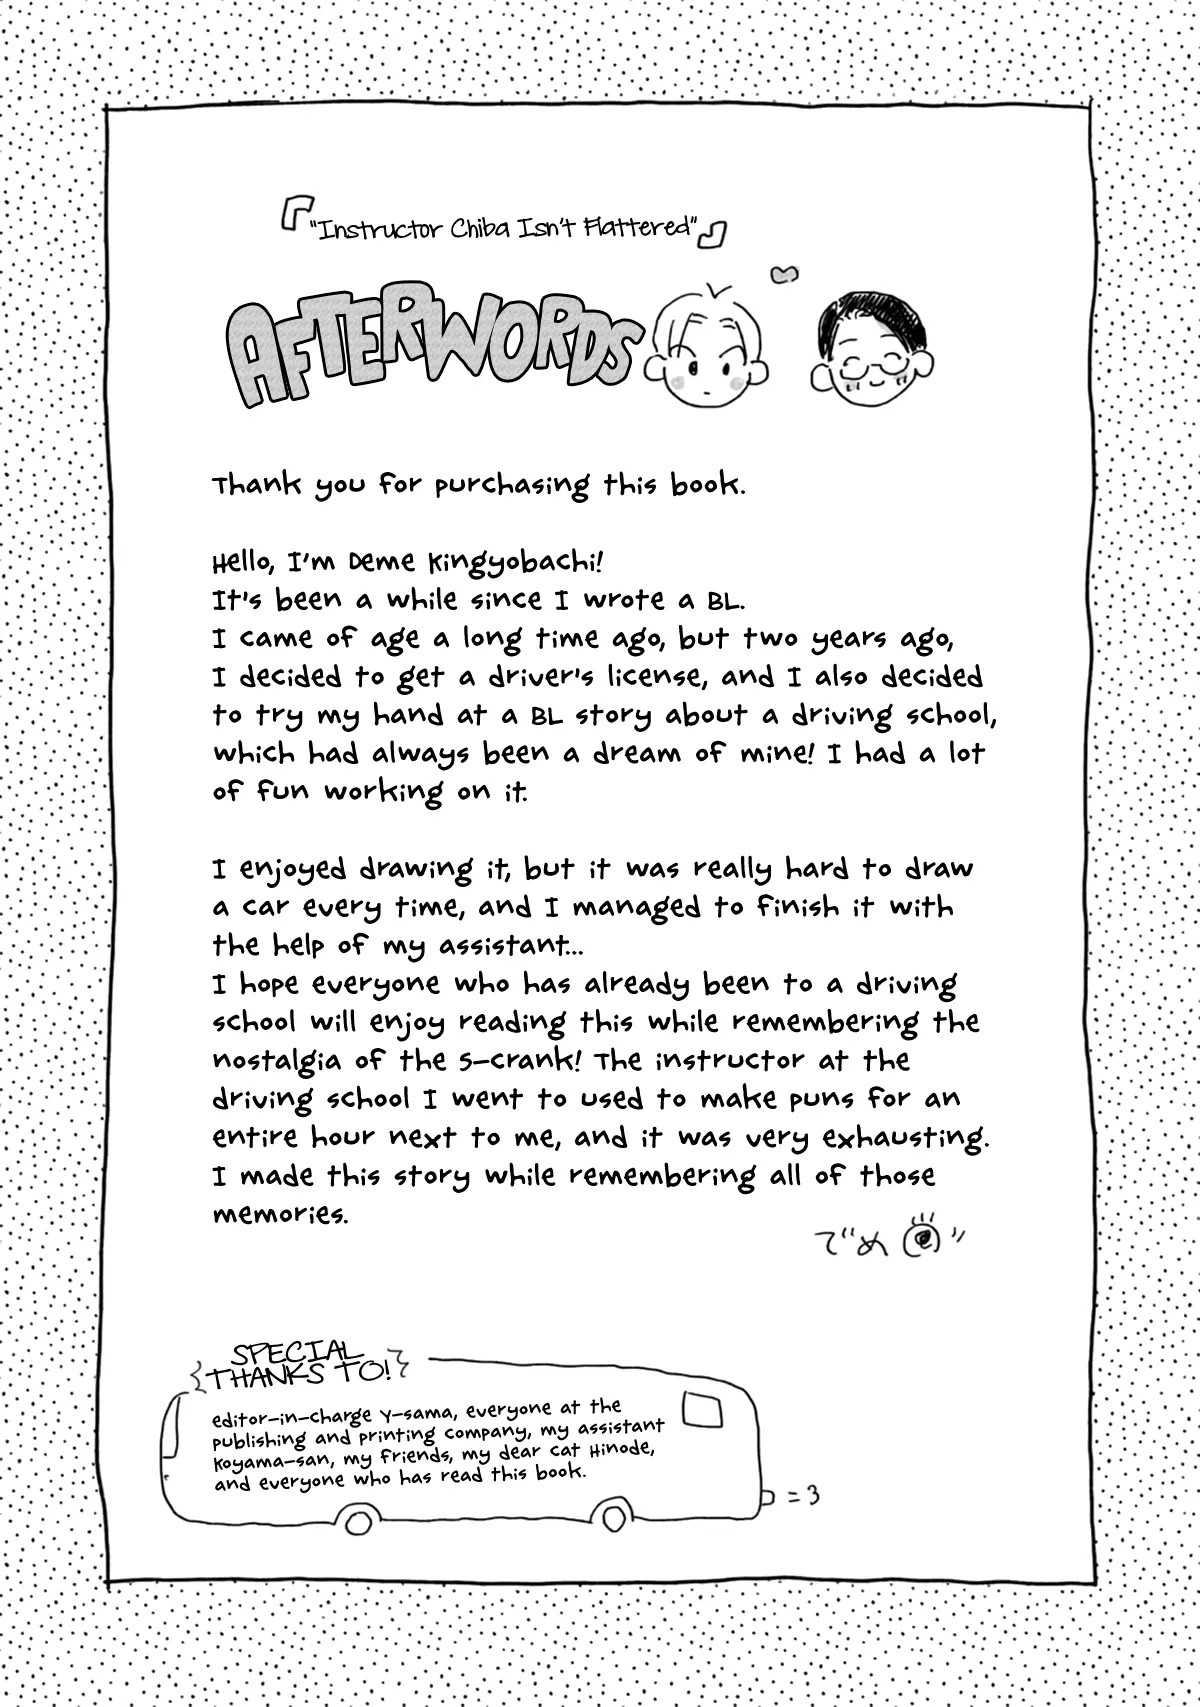 『"Instructor Chiba Isn't Flattered"』
AFTERWORDS
Thank you for purchasing this book.
Hello, I'm Deme Kingyobachi!
It's been a while since I wrote a BL.
I came of age a long time ago, but two years ago,
I decided to get a driver's license, and I also decided
to try my hand at a BL story about a driving school,
which had always been a dream of mine! I had a lot
of fun working on it.
I enjoyed drawing it, but it was really hard to draw
a car every time, and I managed to finish it with
the help of my assistant...
I hope everyone who has already been to a driving
school will enjoy reading this while remembering the
nostalgia of the S-crank! The instructor at the
driving school I went to used to make puns for an
entire hour next to me, and it was very exhausting.
I made this story while remembering all of those
memories.
でめ
SPECIAL
THANKS TO!
editor-in-charge Y-sama, everyone at the
publishing and printing company, my assistant
Koyama-san, my friends, my dear cat Hinode,
and everyone who has read this book.
=3